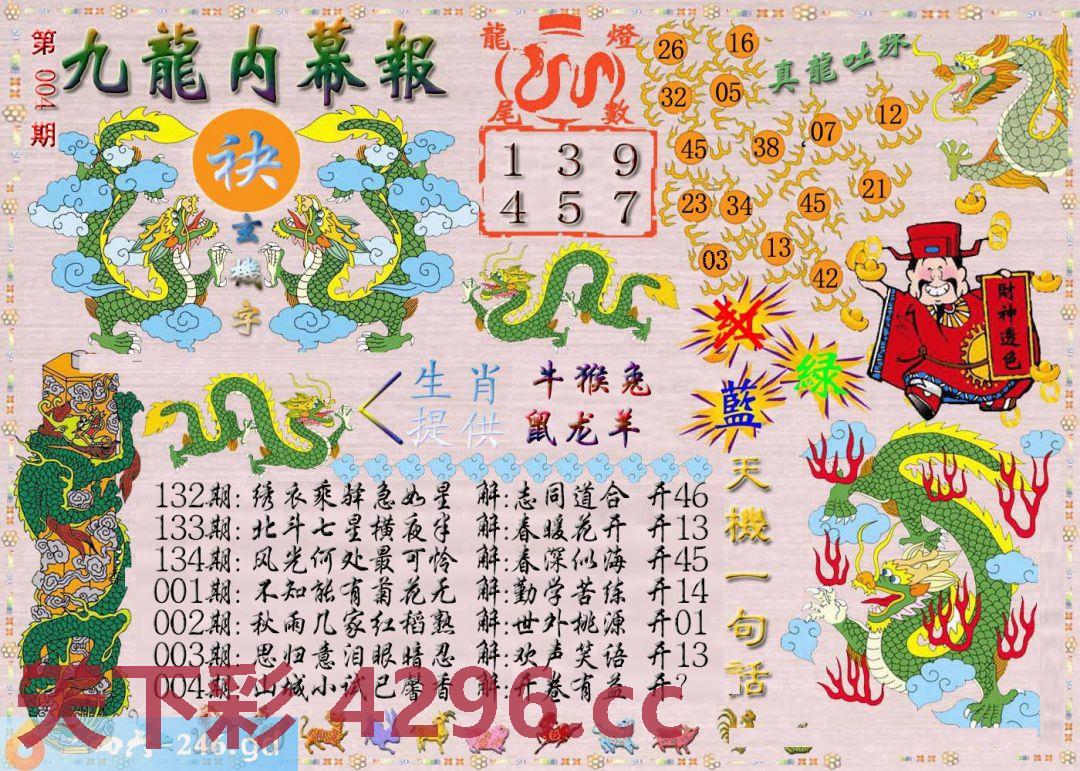 第004期
九龍内幕報
袂
玄機字
龍燈
尾數
1 3 9
4 5 7
真龍吐珠
26 16
32 05
45 38 07 12
23 34 45 21
03 13 42
財神透色
红
綠
藍
生肖 牛猴兔
提供 鼠龙羊
132期: 绣衣乘驿急如星 解:志同道合 开46
133期: 北斗七星横夜半 解:春暖花开 开13
134期: 风光何处最可怜 解:春深似海 开45
001期: 不知能有菊花无 解:勤学苦练 开14
002期: 秋雨几家红稻熟 解:世外桃源 开01
003期: 思归意泪眼暗忍 解:欢声笑语 开13
004期: 山城小试已馨香 解:开卷有益 开?
天機一句話
天下彩 4296.cc
=246.gd